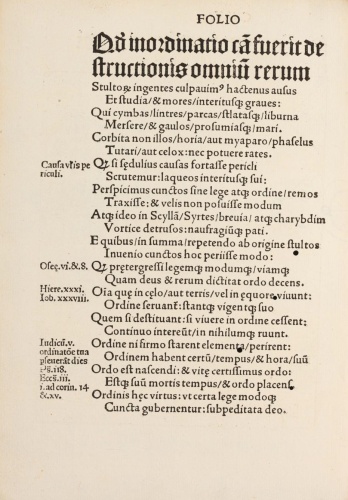 FOLIO
Qđ inordinatio cā fuerit de
structionis omniū rerum
Stultoꝝ ingentes culpauimꝰ hactenus ausus
Et studia/& mores/interitusqꝫ graues:
Qui cymbas/lintres/parcas/stlatasqꝫ/liburna
Mersere/& gaulos/prosumiasqꝫ/mari.
Corbita non illos/horia/aut myparo/phaselus
Tutari/aut celox:nec potuere rates.
Causa vr̄is pe
riculi.
Qꝫ si sedulius causas fortasse pericli
Scrutemur:laqueos interitusqꝫ sui:
Perspicimus cunctos sine lege atqꝫ ordine/remos
Traxisse:& velis non poluisse modum
Atqꝫ ideo in Scyllā/Syrtes/breuia/atqꝫ charybdim
Vortice detrusos:naufragiūqꝫ pati.
E quibus/in summa/repetendo ab origine stultos
Inuenio cunctos hoc periisse modo:
Oseę.vi.&.8.
Qꝫ prętergressi legemqꝫ modumqꝫ/viamqꝫ
Quam deus & rerum dictitat ordo decens.
Hiere.xxxi.
Iob.xxxviii.
Oīa que in cęlo/aut terris/vel in ęquore viuunt:
Ordine seruant̄:stantqꝫ vigentqꝫ suo
Quem si destituant:si viuere in ordine cessent:
Continuo intereūt/in nihilumqꝫ ruunt.
Iudicū.v.
ordinatōe tua
ꝑseuerāt dies
Ps̄.118.
Eccs̄.iii.
i.ad corin.14
&.xv.
Ordine ni firmo starent elementa/perirent:
Ordinem habent certū/tempus/& hora/suū
Ordo est nascendi:& vitę certissimus ordo:
Estqꝫ suū mortis tempus/& ordo placens.
Ordinis hęc virtus:vt certa lege modoqꝫ
Cuncta gubernentur:subpeditata deo.